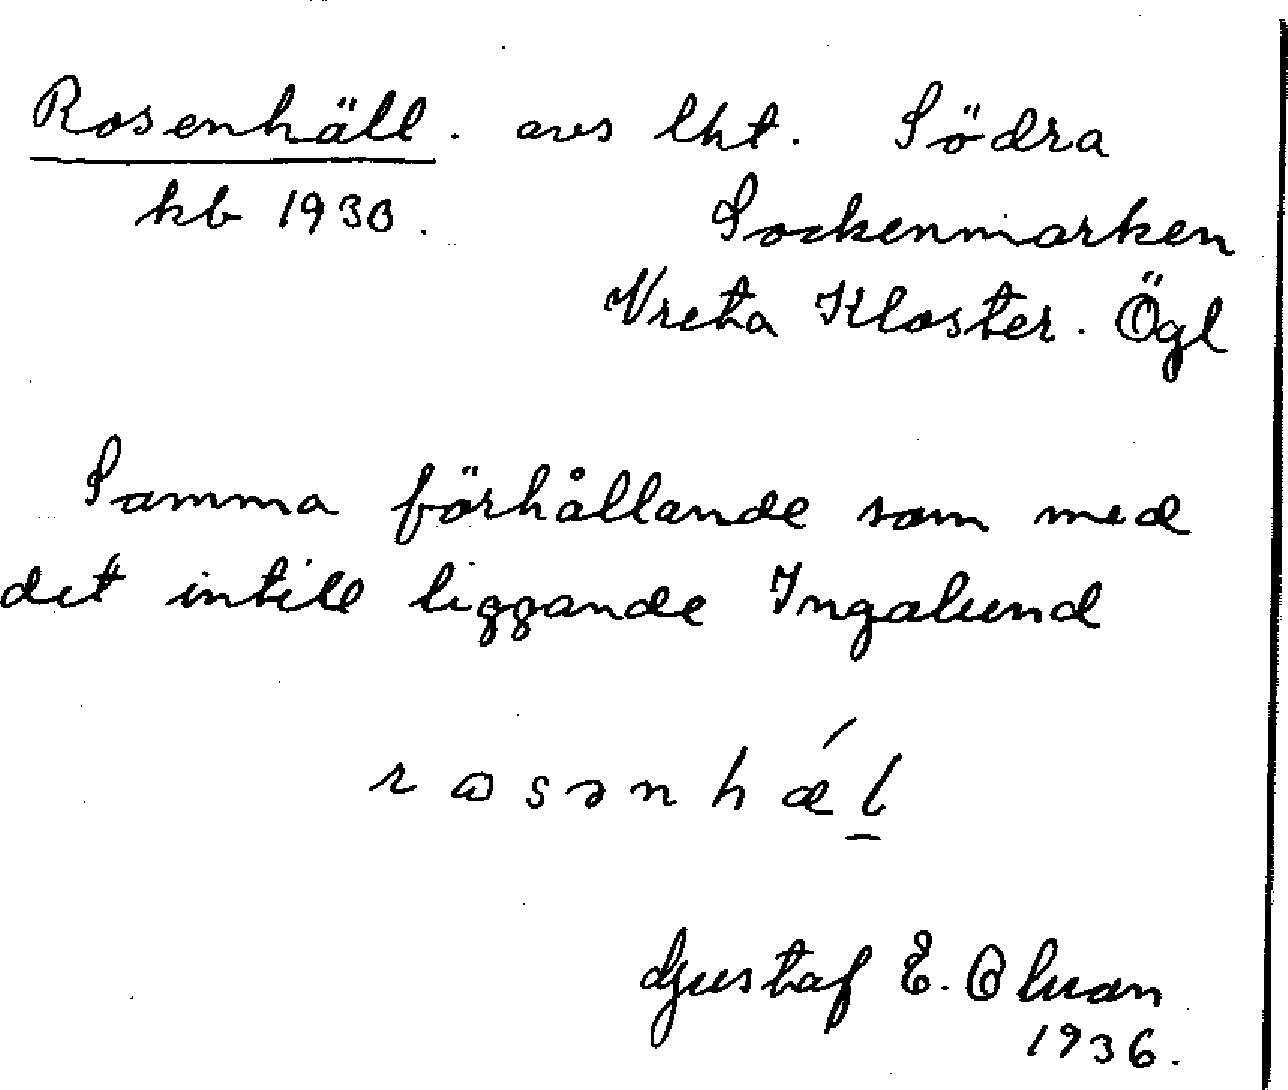 Rosenhäll. avs lht. Södra
kb 1930. Sockenmarken
Vreta Kloster. Ögl
Samma förhållande som med
det intill liggande Ingalund
rosənhǽl̲
Gustaf E. Olsson
1936.